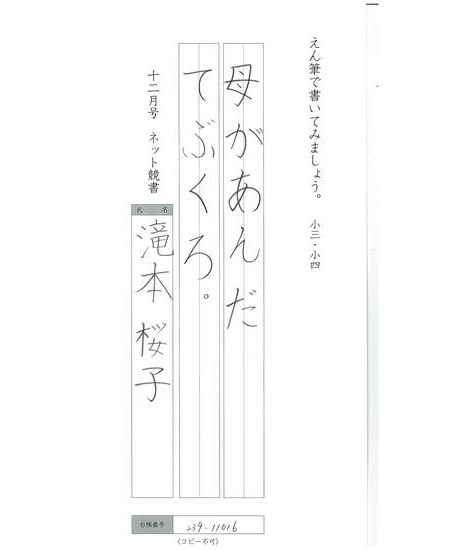 えん筆で書いてみましょう。 小三・小四
母があんだ
てぶくろ。
十二月号 ネット競書
氏名
滝本 桜子
台帳番号 239-11016
(コピー不可)